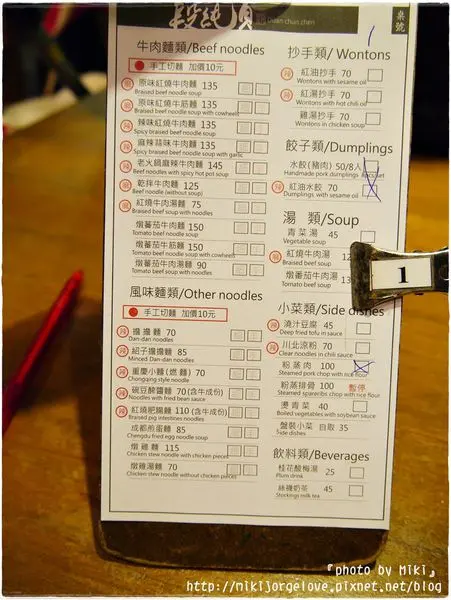 段純貞 Duan chun chen
桌號
牛肉麵類/Beef noodles
手工切麵 加價10元
原味紅燒牛肉麵 135
Braised beef noodle soup
原味紅燒牛筋麵 135
Braised beef noodle soup with cowheels
辣味紅燒牛肉麵 135
Spicy braised beef noodle soup
麻辣蒜味牛肉麵 135
Spicy braised beef noodle soup with garlic
老火鍋麻辣牛肉麵 145
Beef noodles with spicy hot pot soup
乾拌牛肉麵 125
Beef noodle (without soup)
紅燒牛肉湯麵 75
Braised beef soup with noodles
燉蕃茄牛肉麵 150
Tomato beef noodle soup
燉蕃茄牛筋麵 150
Tomato beef noodle soup with cowheels
燉蕃茄牛肉湯麵 90
Tomato beef soup with noodles
風味麵類/Other noodles
手工切麵 加價10元
辣 擔擔麵 70
Dan-dan noodles
辣 紹子擔擔麵 85
Minced Dan-dan noodles
辣 重慶小麵(燃麵) 70
Chongqing style noodle
辣 碗豆酥醬麵 70 (含牛成份)
Noodles with fried bean sauce
辣 紅燒肥腸麵 110 (含牛成份)
Braised pig intestines noodles
成都煎蛋麵 85
Chengdu fried egg noodle soup
燉雞麵 115
Chicken stew noodle with chicken pieces
燉雞湯麵 70
Chicken stew noodle without chicken pieces
抄手類/ Wontons
辣 紅油抄手 70
Wontons with sesame oil
辣 紅湯抄手 70
Wontons with hot chili oil
雞湯抄手 70
Wontons in chicken soup
餃子類/Dumplings
水餃(豬肉) 50/8入
Handmade pork dumplings
辣 紅油水餃 70
Dumplings with sesame oil
湯 類/Soup
青菜湯 45
Vegetable soup
紅燒牛肉湯 12
Braised beef soup
燉蕃茄牛肉湯 13
Tomato beef soup
1
小菜類/Side dishes
辣 澆汁豆腐 45
Deep fried tofu in sauce
辣 川北涼粉 70
Clear noodles in chili sauce
粉蒸肉 100
Steamed pork chop with rice flour
粉蒸排骨 100 暫停
Steamed spareribs chop with rice flour
燙青菜 40
Boiled vegetables with soybean sauce
盤裝小菜 自取 35
Side dishes
飲料類/Beverages
桂花酸梅湯 25
Plum drink
絲襪奶茶 45
Stockings milk tea
『photo by Miki』
http://mikijorgelove.pixnet.net/blog